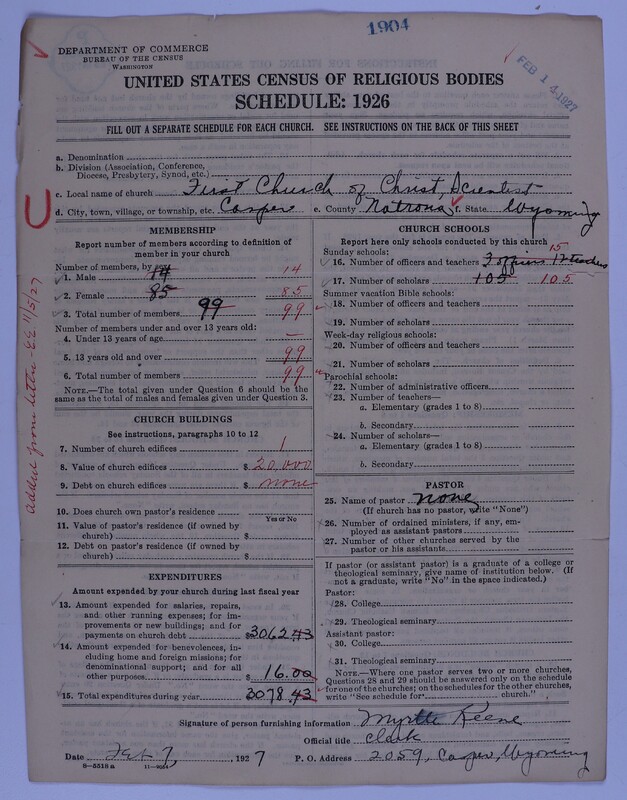 1904
DEPARTMENT OF COMMERCE
BUREAU OF THE CENSUS
WASHINGTON
FEB 14 1927
UNITED STATES CENSUS OF RELIGIOUS BODIES
SCHEDULE: 1926
FILL OUT A SEPARATE SCHEDULE FOR EACH CHURCH. SEE INSTRUCTIONS ON THE BACK OF THIS SHEET
a. Denomination
b. Division (Association, Conference,
Diocese, Presbytery, Synod, etc.)
c. Local name of church First Church of Christ, Scientist
d. City, town, village, or township, etc. Casper e. County Natrona f. State Wyoming
MEMBERSHIP
Report number of members according to definition of
member in your church
Number of members, by
1. Male 14 14
2. Female 85 85
3. Total number of members 99 99
Number of members under and over 13 years old:
4. Under 13 years of age —
5. 13 years old and over 99
6. Total number of members 99
NOTE.—The total given under Question 6 should be
same as the total of males and females given under Question 3.
CHURCH BUILDINGS
See instructions, paragraphs 10 to 12
7. Number of church edifices 1
8. Value of church edifices $ 20,000
9. Debt on church edifices $ none
10. Does church own pastor's residence
Yes or No
11. Value of pastor's residence (if owned by
church) $
12. Debt on pastor's residence (if owned by
church) $
EXPENDITURES
Amount expended by your church during last fiscal year
13. Amount expended for salaries, repairs,
and other running expenses; for im-
provements or new buildings; and for
payments on church debt $3062.43
14. Amount expended for benevolences, in-
cluding home and foreign missions; for
denominational support; and for all
other purposes $ 16.00
15. Total expenditures during year 3078.43
added from letter - EE 11/5/27
CHURCH SCHOOLS
Report here only schools conducted by this church
Sunday schools: 15
16. Number of officers and teachers 3 officers 12 teachers
17. Number of scholars 105 105
Summer vacation Bible schools:
18. Number of officers and teachers
19. Number of scholars
Week-day religious schools:
20. Number of officers and teachers
21. Number of scholars
Parochial schools:
22. Number of administrative officers
23. Number of teachers—
a. Elementary (grades 1 to 8)
b. Secondary
24. Number of scholars—
a. Elementary (grades 1 to 8)
b. Secondary
PASTOR
25. Name of pastor none
(If church has no pastor, write "None")
26. Number of ordained ministers, if any, em-
ployed as assistant pastors
27. Number of other churches served by the
pastor or his assistants
If pastor (or assistant pastor) is graduate of a college or
theological seminary, give name of institution below. (If
not a graduate, write "No" in the space indicated.)
Pastor:
28. College
29. Theological seminary
Assistant pastor:
30. College
31. Theological seminary
NOTE.—Where one pastor serves two or more churches,
Questions 28 and 29 should be answered only on the schedule
for one of the churches; on the schedules for the other churches,
write "See schedule for church."
Signature of person furnishing information Myrtle Keene
Official title Clerk
Date Feb 7, 1927 P. O. Address 2059, Casper, Wyoming
8—5518 a